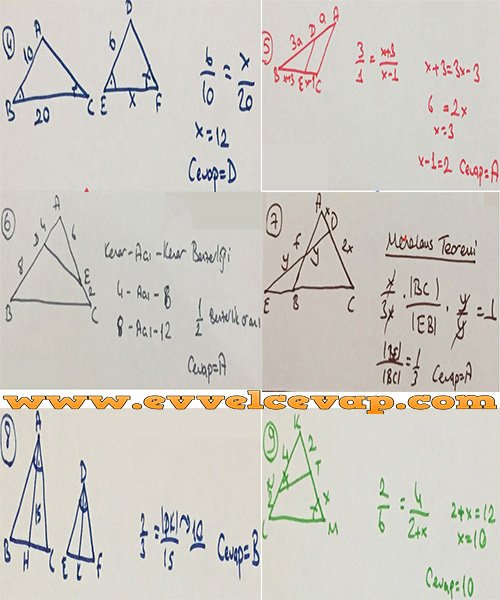 4
A
10
B
20
C
D
6
E
x
F
6/10 = x/20
x=12
Cevap=D
5
3a
D
a
A
B
x+3
E
x-1
C
3/1 = x+3/x-1
x+3=3x-3
6=2x
x=3
x-1=2 Cevap=A
6
A
D
4
6
8
E
2
B
C
Kenar-Açı-Kenar Benzerliği
4-Açı-8
8-Açı-12
1/2 Benzerlik oranı
Cevap=A
7
A
x
D
F
2x
y
y
E
B
C
Menelaus Teoremi
x/3x · |BC|/|EB| · y/y = 1
|BE|/|BC| = 1/3 Cevap=A
www.evvelcevap.com
8
A
15
B
H
C
D
E
L
F
2/3 = |DL|/15 → 10
Cevap=B
9
K
2
4
T
x
L
M
2/6 = 4/2+x
2+x=12
x=10
Cevap=10